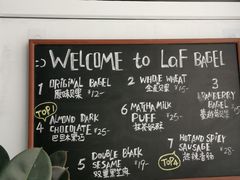 :) WELCOME to LOF BAGEL
1 ORIGINAL BAGEL
原味贝果 ¥12-
2 WHOLE WHEAT
全麦贝果 ¥15-
3
CRANBERRY
BAGEL
蔓越莓贝果
TOP1
4 ALMOND DARK
CHOCOLATE ¥25-
巴旦木黑巧
6 MATCHA MILK
PUFF ¥25-
抹茶奶酥
5 DOUBLE BLACK
SESAME ¥19-
双重黑芝麻
7 HOT AND SPICY
SAUSAGE ¥28-
TOP4
香肠